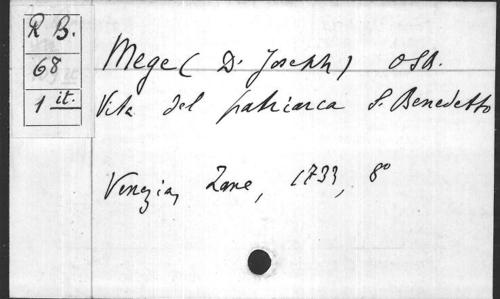 R B.
68
1 it.
Mege ( D. Joseph ) OSB.
Vita del patriarca S. Benedetto
Venezia, Zane, 1733, 8°